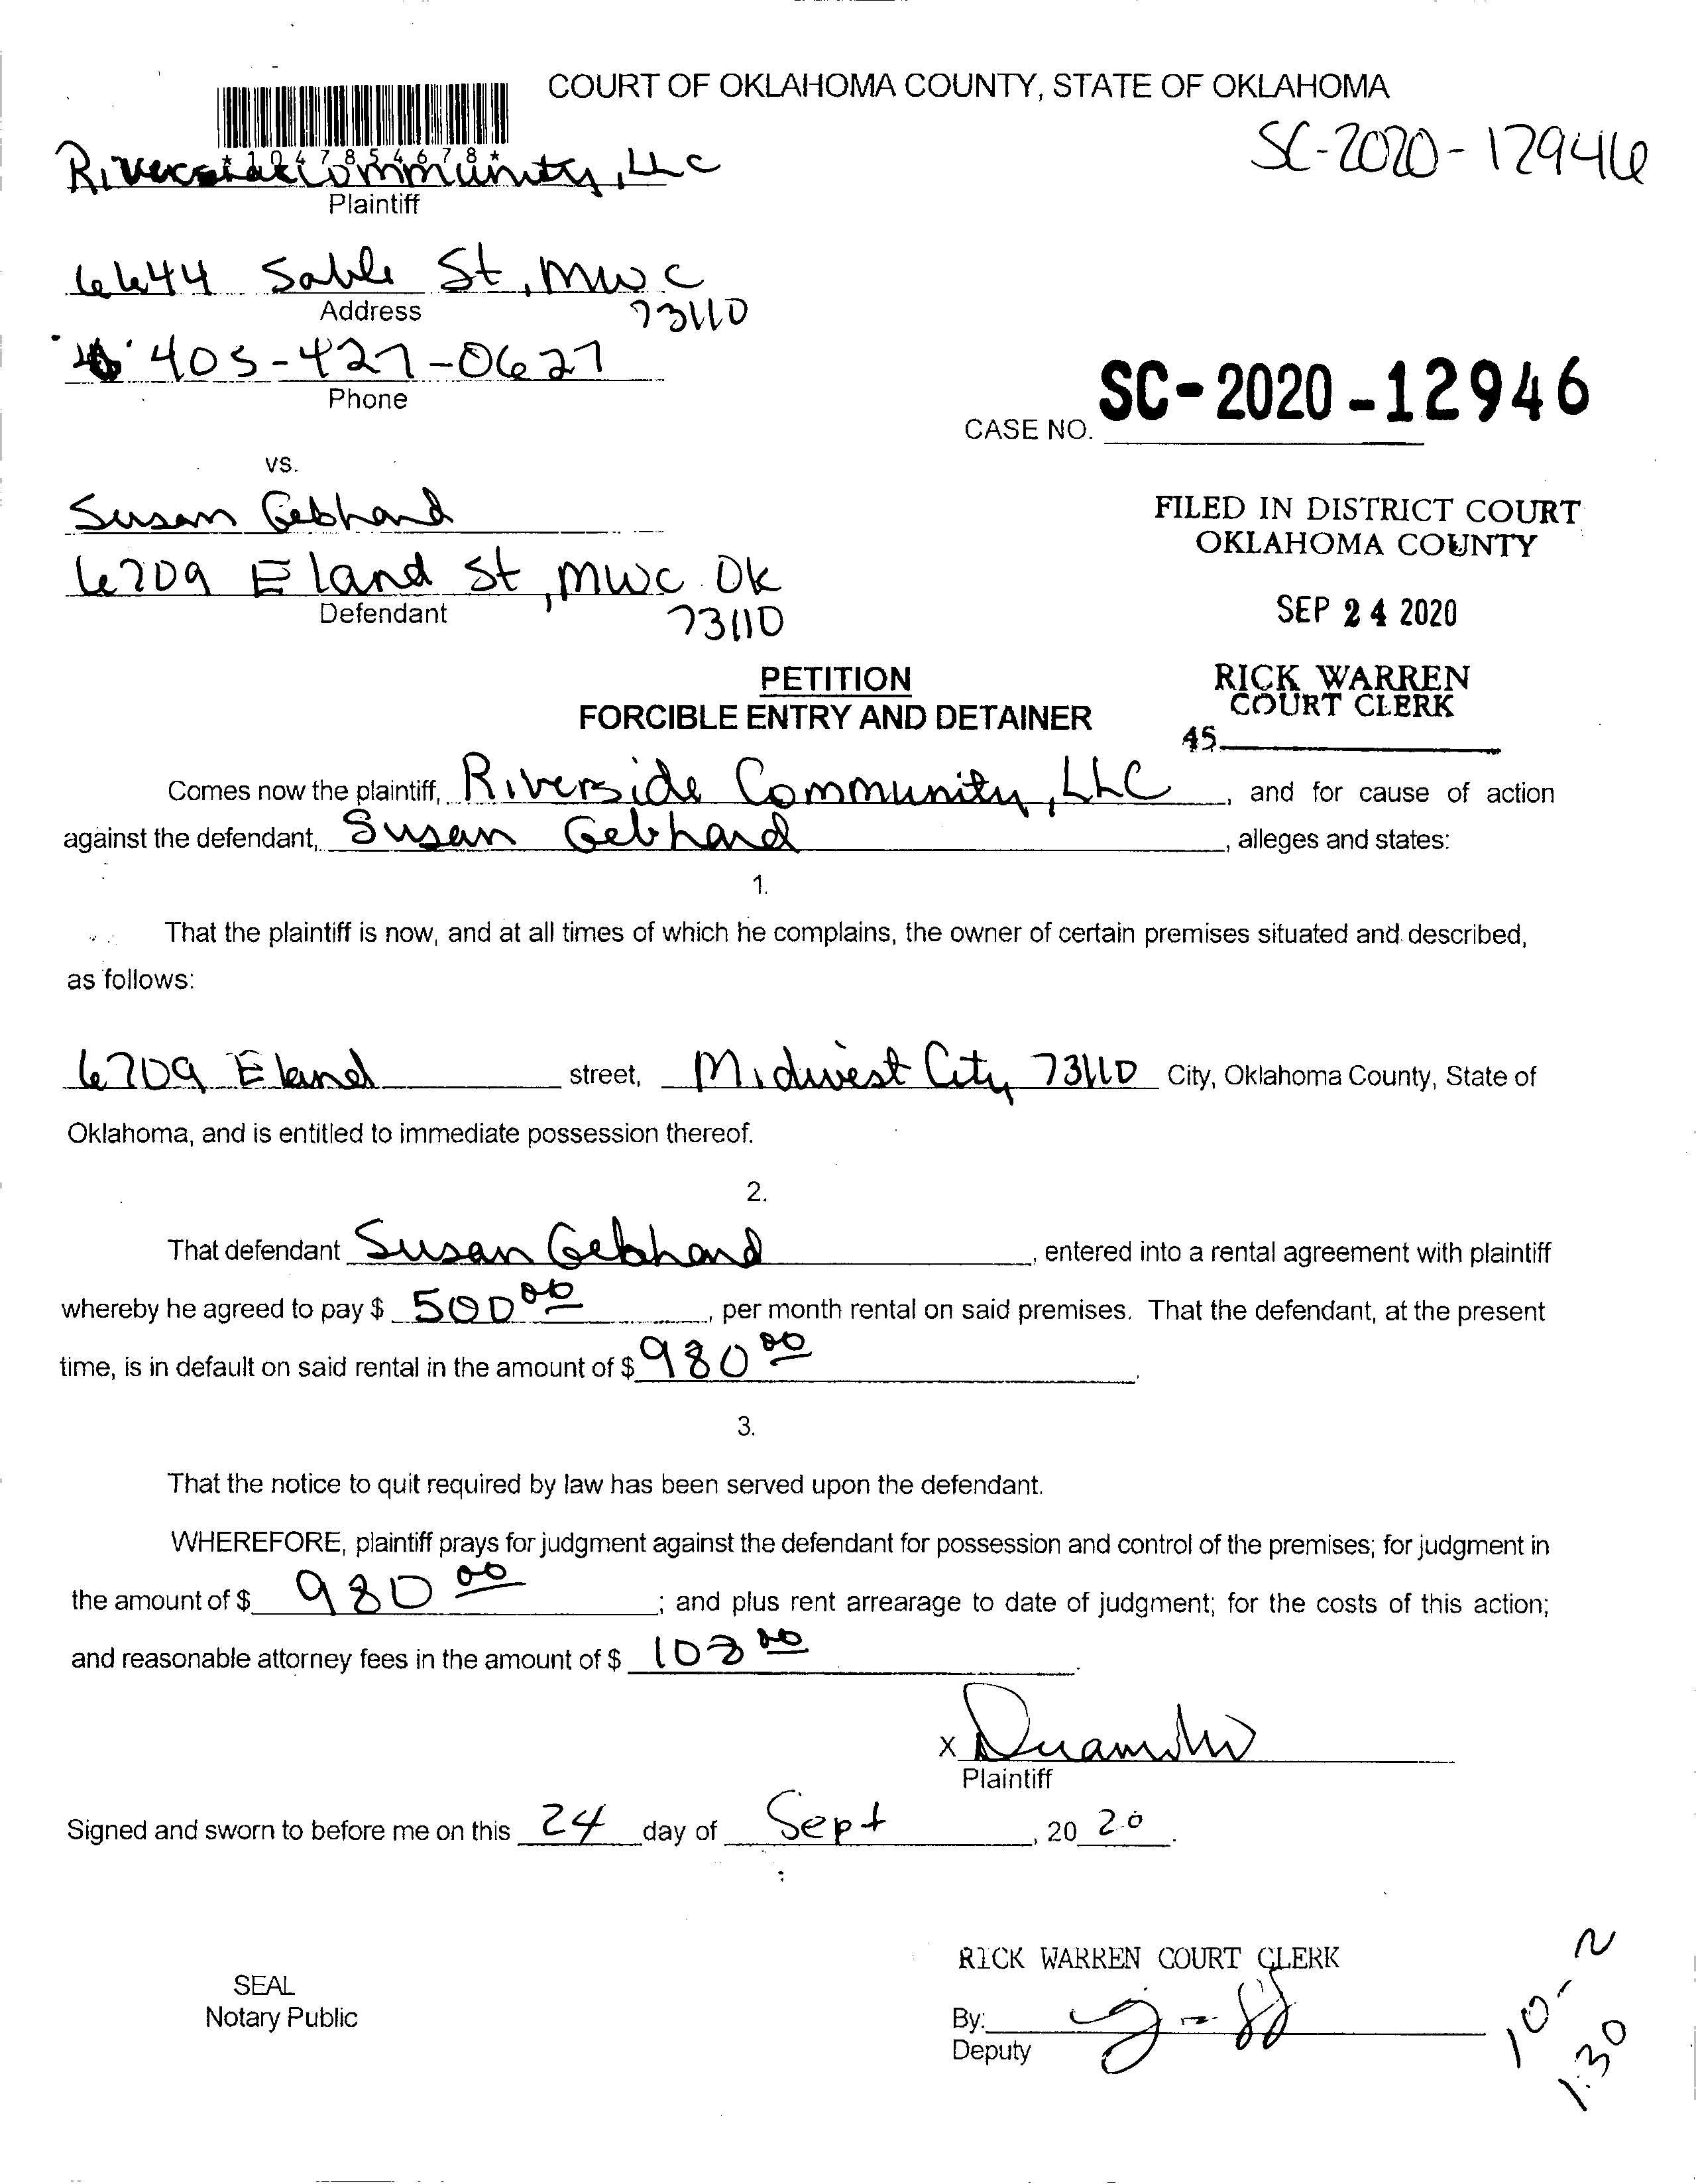 COURT OF OKLAHOMA COUNTY, STATE OF OKLAHOMA
SC-2020-12946
*1047854678*
Riverside Community, LLC
Plaintiff
6644 Sable St, MWC
Address
73110
405-427-0627
Phone
SC-2020-12946
CASE NO.
vs.
Susan Gebhard
FILED IN DISTRICT COURT
OKLAHOMA COUNTY
6709 Eland St, MWC OK
Defendant
73110
SEP 24 2020
PETITION
FORCIBLE ENTRY AND DETAINER
RICK WARREN
COURT CLERK
45
Comes now the plaintiff, Riverside Community, LLC, and for cause of action
against the defendant, Susan Gebhard, alleges and states:
1.
That the plaintiff is now, and at all times of which he complains, the owner of certain premises situated and described,
as follows:
6709 Eland street, Midwest City 73110 City, Oklahoma County, State of
Oklahoma, and is entitled to immediate possession thereof.
2.
That defendant Susan Gebhard, entered into a rental agreement with plaintiff
whereby he agreed to pay $ 500 00, per month rental on said premises. That the defendant, at the present
time, is in default on said rental in the amount of $ 980 00.
3.
That the notice to quit required by law has been served upon the defendant.
WHEREFORE, plaintiff prays for judgment against the defendant for possession and control of the premises; for judgment in
the amount of $ 980 00; and plus rent arrearage to date of judgment; for the costs of this action;
and reasonable attorney fees in the amount of $
X
Plaintiff
Signed and sworn to before me on this 24 day of Sept, 20 20.
RICK WARREN COURT CLERK
SEAL
Notary Public
By:
Deputy
10-2
1:30